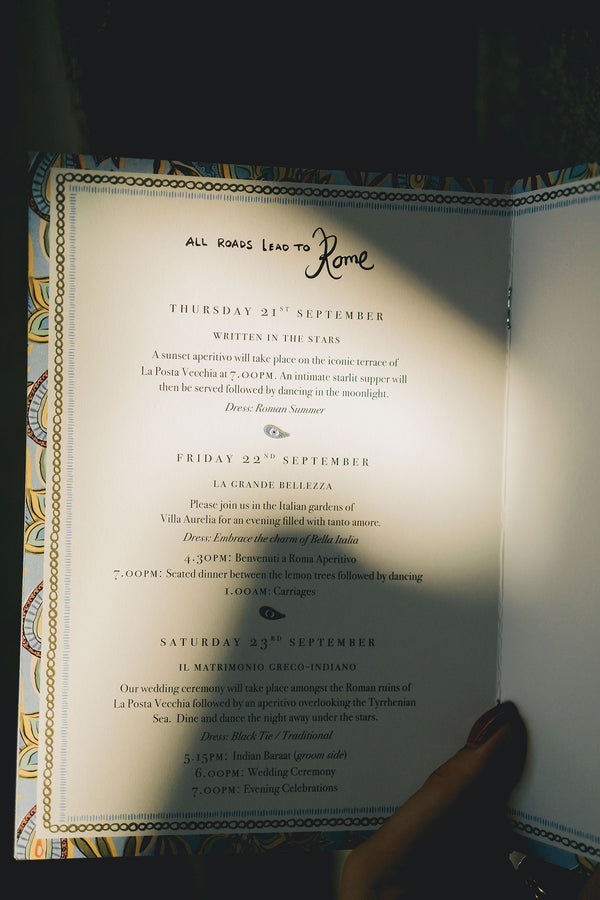 ALL ROADS LEAD TO Rome
THURSDAY 21ST SEPTEMBER
WRITTEN IN THE STARS
A sunset aperitivo will take place on the iconic terrace of
La Posta Vecchia at 7.00PM. An intimate starlit supper will
then be served followed by dancing in the moonlight.
Dress: Roman Summer
FRIDAY 22ND SEPTEMBER
LA GRANDE BELLEZZA
Please join us in the Italian gardens of
Villa Aurelia for an evening filled with tanto amore.
Dress: Embrace the charm of Bella Italia
4.30PM: Benvenuti a Roma Aperitivo
7.00PM: Seated dinner between the lemon trees followed by dancing
1.00AM: Carriages
SATURDAY 23RD SEPTEMBER
IL MATRIMONIO GRECO-INDIANO
Our wedding ceremony will take place amongst the Roman ruins of
La Posta Vecchia followed by an aperitivo overlooking the Tyrrhenian
Sea. Dine and dance the night away under the stars.
Dress: Black Tie / Traditional
5.15PM: Indian Baraat (groom side)
6.00PM: Wedding Ceremony
7.00PM: Evening Celebrations